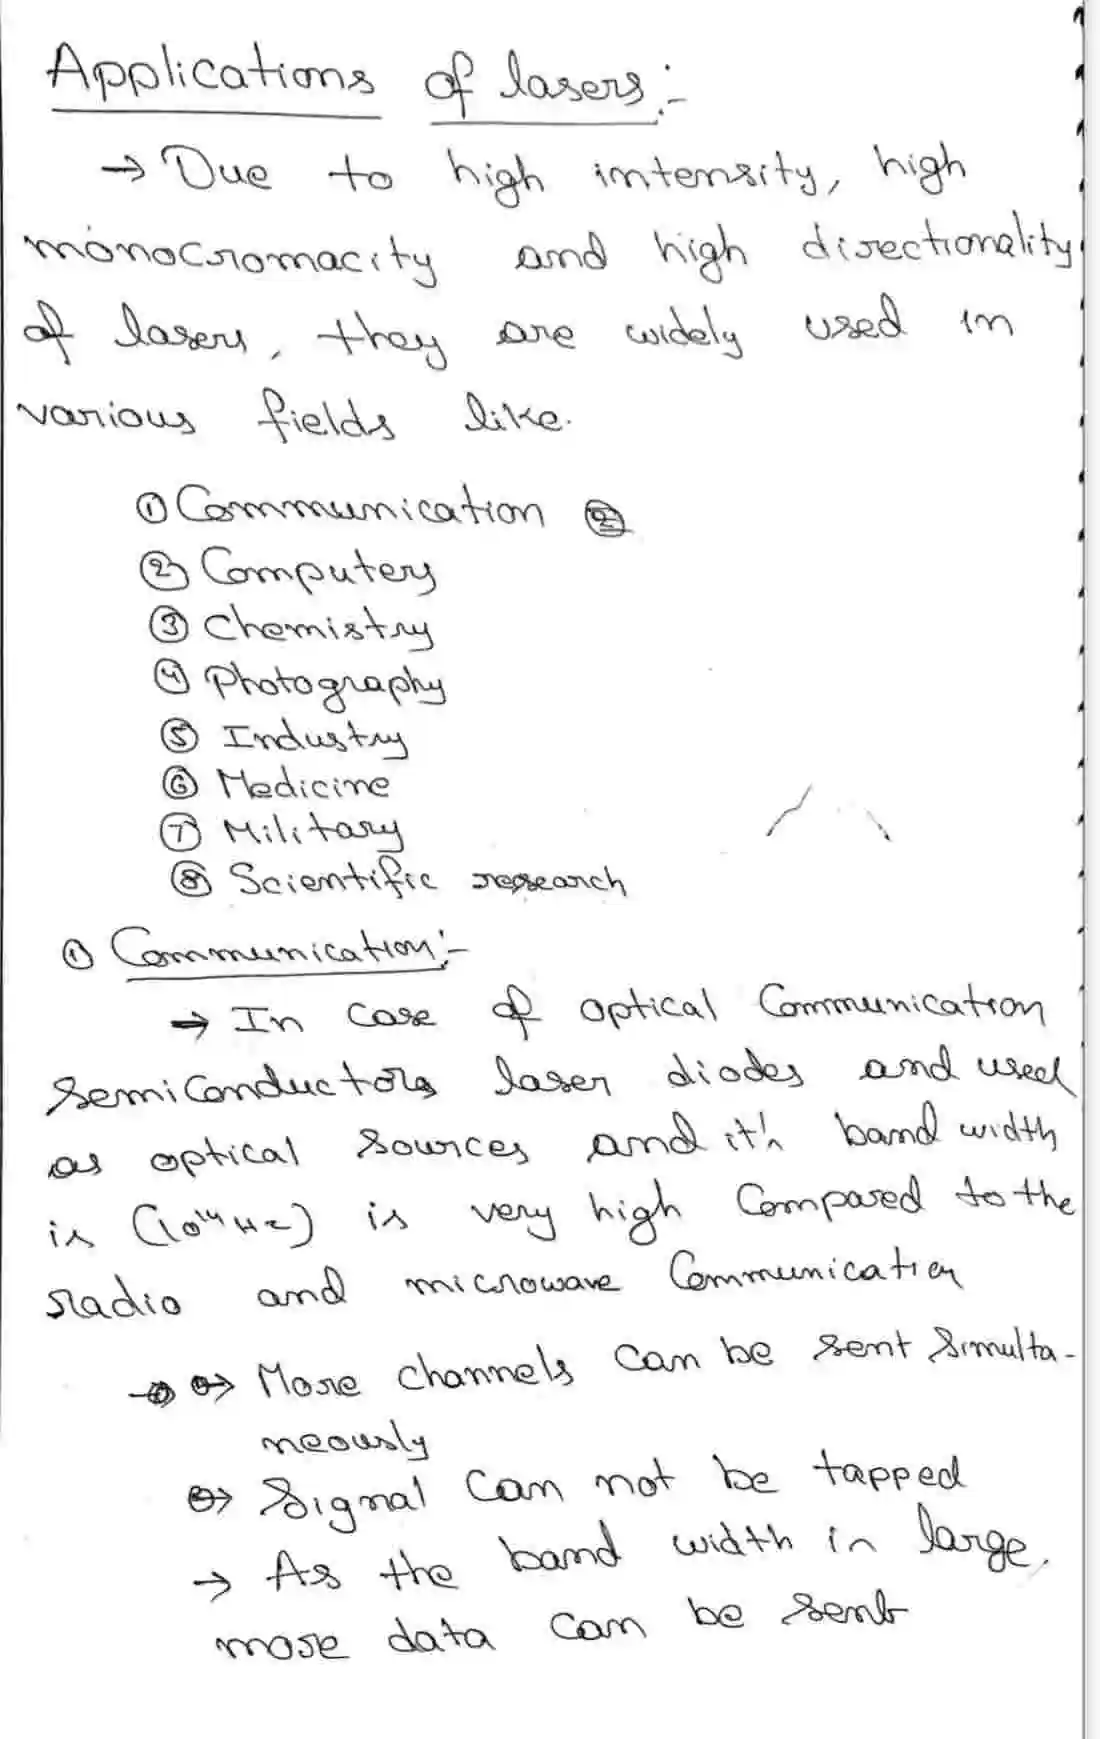 Applications of lasers:-
→ Due to high intensity, high
monocromacity and high directionality
of lasers, they are widely used in
various fields like.
① Communication
② Computers
③ Chemistry
④ Photography
⑤ Industry
⑥ Medicine
⑦ Military
⑧ Scientific research
① Communication:-
→ In case of optical Communication
semiconductors laser diodes and used
as optical sources and it's band width
is (10¹⁴ Hz) is very high Compared to the
radio and microwave Communication
→ More channels can be sent simulta-
neously
→ Signal can not be tapped
→ As the band width is large,
more data can be sent